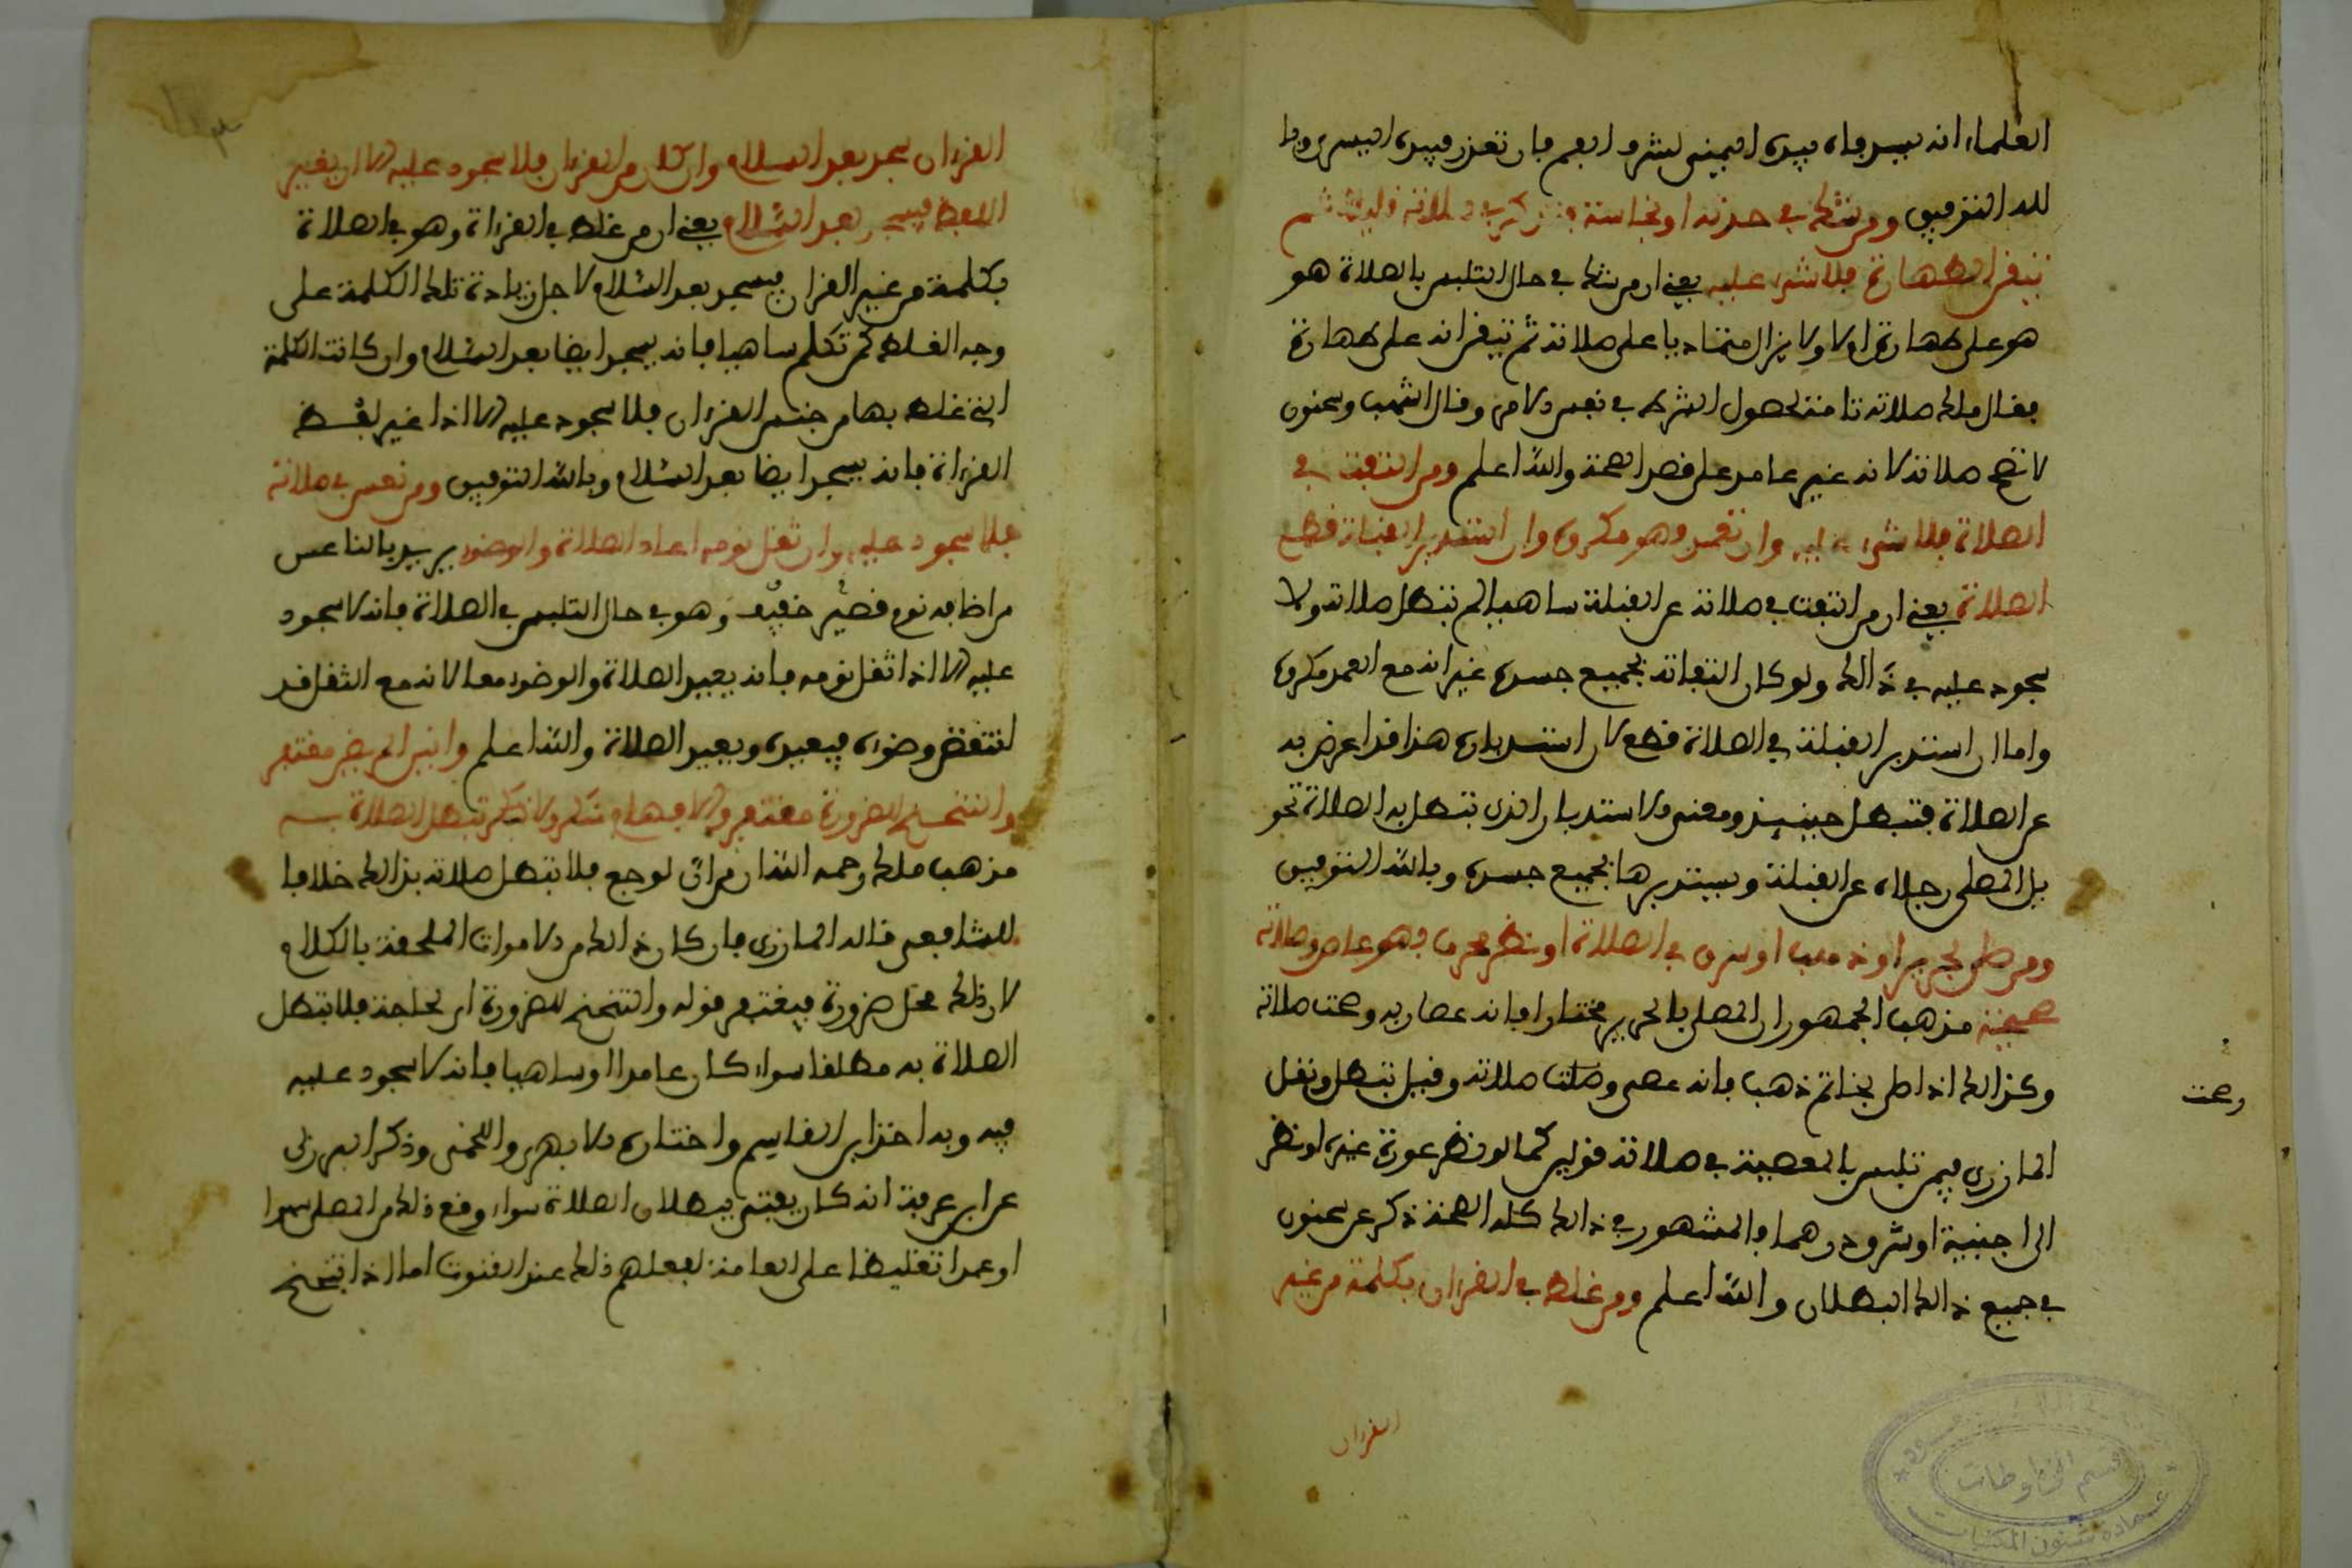 العلماء انه يسد فاه بيده اليمنى لشرف الفم فان تعذر فبيده اليسرى وبا
لله التوفيق ومن شك في حدث او نجاسة فتفكر في صلاته قليلا ثم
تيقن الطهارة فلا شيء عليه يعني ان من شك في حال التلبس بالصلاة هو
هو على طهارة ام لا ولا يزال متماديا على صلاته ثم تيقن انه على طهارة
فقال ملك صلاته تامة لحصول الشرط في نفس الامر وقال اشهب وسحنون
لا تصح صلاته لانه غير عامد على قصد الصحة والله اعلم ومن التفت في
الصلاة فلا شيء عليه وان تعمد وهو مكروه وان استدبر القبلة قطع
الصلاة يعني ان من التفت في صلاته عن القبلة ساهيا لم تبطل صلاته ولا
سجود عليه في ذالك ولو كان التفاته بجميع جسده غير انه مع العمد مكروه
واما ان استدبر القبلة في الصلاة قطع لان استدباره هذا قد اعرض به
عن الصلاة فتبطل حينيذ ومعنى الاستدبار الذي تبطل به الصلاة تحو
يل المصلي رجلاه عن القبلة ويستدبرها بجميع جسده وبالله التوفيق
ومن صلى بحرير او ذهب او سرق في الصلاة او نظر محرما فهو عاص وصلاته
صحيحة مذهب الجمهور ان المصلي بالحرير مختارا فانه عصا ربه وصحت صلاته
وكذالك اذا صلى بخاتم ذهب فانه عصى وصحت صلاته وقيل تبطل ونقل
وصحت
المازري فيمن تلبس بالمعصية في صلاته قولين كما لو نظر عورة غيره او نظر
الى اجنبية او سرق درهما والمشهور في ذالك كله الصحة ذكر عن سحنون
في جميع ذالك البطلان والله اعلم ومن غلط في القرءان بكلمة من غير
القرءان
القرءان سجد بعد السلام وان كان من القرءان فلا سجود عليه الا ان يتغير
اللفظ فيسجد بعد السلام يعني ان من غلط في القراءة وهو في الصلاة
بكلمة من غير القرءان فيسجد بعد السلام لاجل زيادة تلك الكلمة على
وجه الغلط كمن تكلم ساهيا فانه يسجد ايضا بعد السلام وان كانت الكلمة
التي غلط بها من جنس القرءان فلا سجود عليه الا اذا غير لفظ
القراءة فانه يسجد ايضا بعد السلام وبالله التوفيق ومن نعس في صلاته
فلا سجود عليه وان ثقل نومه اعاد الصلاة والوضوء يريد بالناعس
من اصابه نوم قصير خفيف وهو في حال التلبس في الصلاة فانه لا سجود
عليه الا اذا ثقل نومه فانه يعيد الصلاة والوضوء معا لانه مع الثقل قد
انتقض وضوءه فيعيده ويعيد الصلاة والله اعلم وانين المريض مغتفر
والتنحنح للضرورة مغتفر وللافهام منكر ولا تبطل الصلاة به
مذهب ملك رحمه الله ان من ان لوجع فلا تبطل صلاته بذالك خلافا
للشافعي قاله المازري فان كان ذالك من الاصوات الملحقة بالكلام
لان ذلك محل ضرورة فيغتفر قوله والتنحنح للضرورة اي لحاجة فلا تبطل
الصلاة به مطلقا سواء كان عامدا او ساهيا فانه لا سجود عليه
فيه وبه اخذ ابن القاسم واختاره الابهري واللخمي وذكر البرزلي
عن ابن عرفة انه كان يفتي ببطلان الصلاة سواء وقع ذلك من المصلي سهوا
او عمدا تغليظا على العامة لفعلهم ذلك عند القنوت اما اذا تنحنح
قسم المخطوطات
عمادة شئون المكتبات